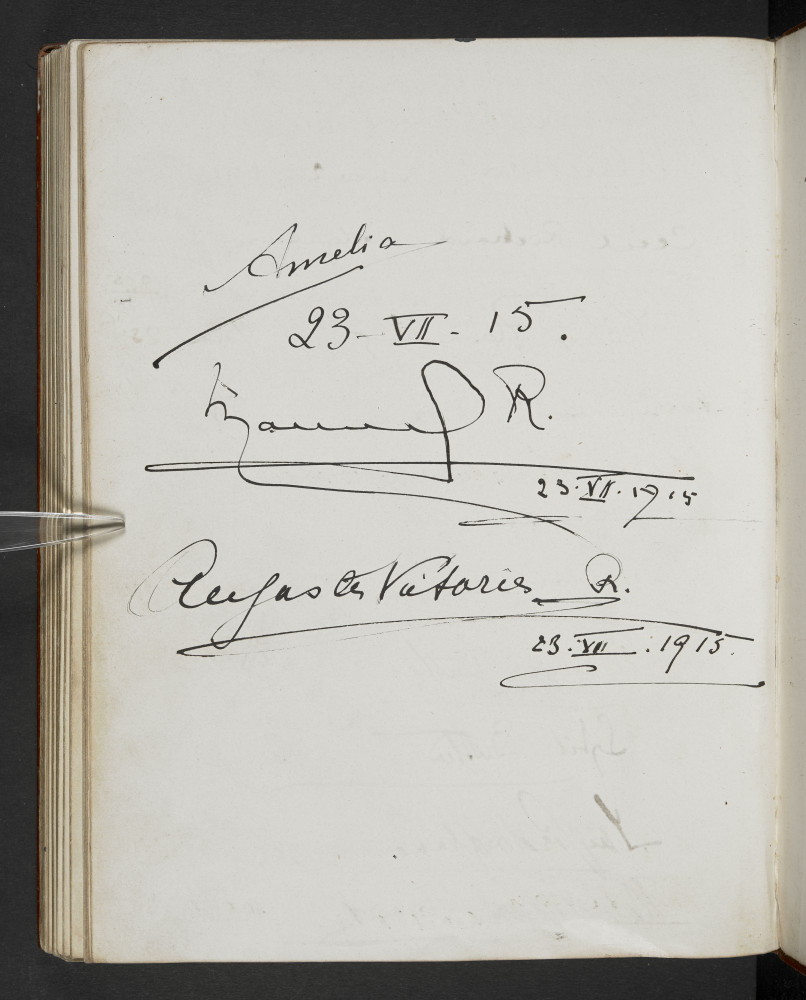 Amelia
23-VII-15.
Manuel R.
23.VII.1915
Augusta Victoria R.
23.VII.1915.